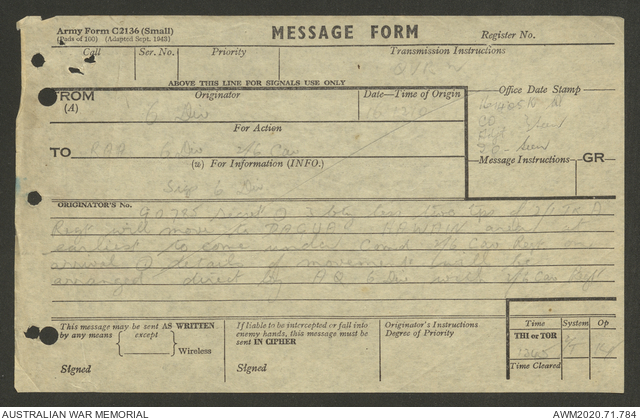 Army Form C2136 (Small)
(Pads of 100) (Adapted Sept. 1943)
MESSAGE FORM
Register No.
Call Ser. No. Priority Transmission Instructions
ABOVE THIS LINE FOR SIGNALS USE ONLY
FROM
(A)
Originator
Date—Time of Origin
Office Date Stamp
6 Div
For Action
TO
RAA 6 Div 2/6 Cav
(w) For Information (INFO.)
Message Instructions
GR
Sigs 6 Div
ORIGINATOR'S No.
secret less two tps of 2/1 TK A
Regt will move to DAGUA area at
earliest to come under Comd 2/6 Cav Regt on
arrival details of movement will be
arranged direct by 6 Div with 2/6 Cav Regt
This message may be sent AS WRITTEN
by any means except
Wireless
Signed
If liable to be intercepted or fall into
enemy hands, this message must be
sent IN CIPHER
Signed
Originator's Instructions
Degree of Priority
Time System Op
THI or TOR
Time Cleared
AUSTRALIAN WAR MEMORIAL
AWM2020.71.784